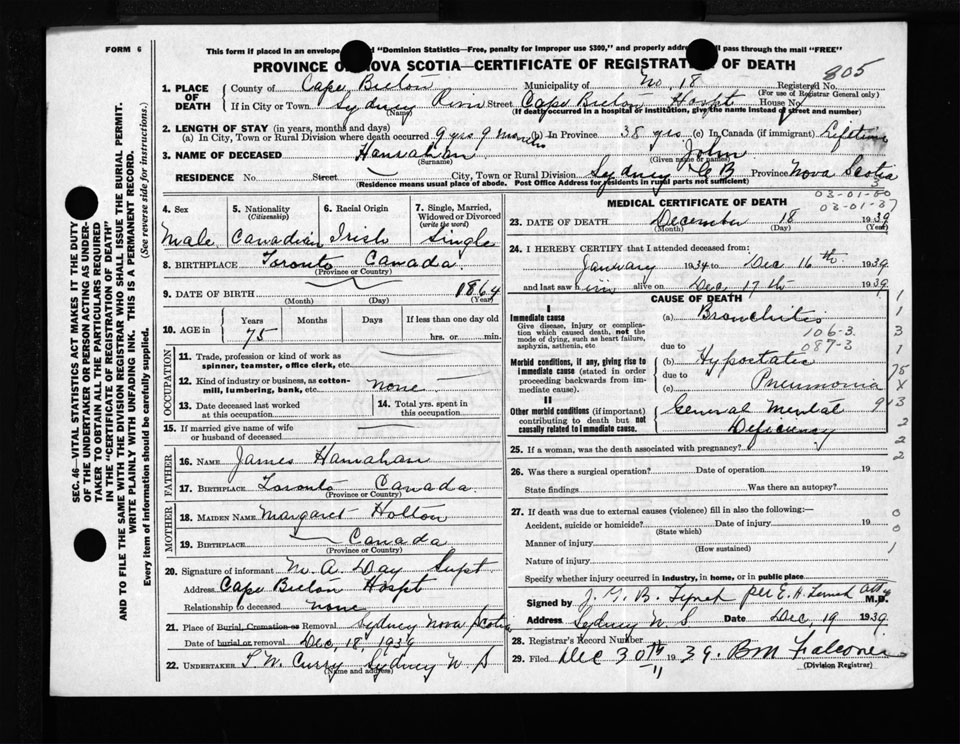 FORM 6
This form if placed in an envelope "Dominion Statistics—Free, penalty for improper use $300," and properly addre pass through the mail "FREE"
PROVINCE O NOVA SCOTIA—CERTIFICATE OF REGISTRAT OF DEATH
805
1. PLACE OF DEATH
County of Cape Breton Municipality of No. 18 Registered No.
(For use of Registrar General only)
If in City or Town Sydney River Street Cape Breton Hospt House No.
(Name) (If death occurred in a hospital or institution, give the name instead of street and number)
2. LENGTH OF STAY (in years, months and days)
(a) In City, Town or Rural Division where death occurred 9 yrs 9 months (b) In Province 38 yrs (c) In Canada (if immigrant) Lifetime
3. NAME OF DECEASED Hanrahan John
(Surname) (Given name or names)
RESIDENCE No. Street City, Town or Rural Division Sydney C B Province Nova Scotia
(Residence means usual place of abode. Post Office Address for residents in rural parts not sufficient)
3
03-01-80
03-01-37
4. Sex Male
5. Nationality (Citizenship) Canadian
6. Racial Origin Irish
7. Single, Married, Widowed or Divorced (write the word) Single
8. BIRTHPLACE Toronto Canada
(Province or Country)
9. DATE OF BIRTH 1864
(Month) (Day) (Year)
10. AGE in Years Months Days If less than one day old
75 hrs. or min.
OCCUPATION
11. Trade, profession or kind of work as spinner, teamster, office clerk, etc.
12. Kind of industry or business, as cotton-mill, lumbering, bank, etc. none
13. Date deceased last worked at this occupation
14. Total yrs. spent in this occupation
15. If married give name of wife or husband of deceased
FATHER
16. NAME James Hanrahan
17. BIRTHPLACE Toronto Canada
(Province or Country)
MOTHER
18. MAIDEN NAME Margaret Holton
19. BIRTHPLACE Canada
(Province or Country)
20. Signature of informant M. A. Day Supt
Address Cape Breton Hospt
Relationship to deceased none
21. Place of Burial, Cremation or Removal Sydney Nova Scotia
Date of burial or removal Dec 18, 1939
22. UNDERTAKER T. W. Curry Sydney N S
(Name and address)
MEDICAL CERTIFICATE OF DEATH
23. DATE OF DEATH December 18 1939
(Month) (Day) (Year)
24. I HEREBY CERTIFY that I attended deceased from:
January 1934 to Dec 16th 1939
and last saw him alive on Dec. 17th 1939
CAUSE OF DEATH
I
Immediate cause
Give disease, injury or complication which caused death, not the mode of dying, such as heart failure, asphyxia, asthenia, etc
(a) Bronchitis
106-3
due to 087-3
Morbid conditions, if any, giving rise to immediate cause (stated in order proceeding backwards from immediate cause).
(b) Hypostatic
due to
(c) Pneumonia
II
Other morbid conditions (if important) contributing to death but not causally related to immediate cause.
General Mental Deficiency
1
1
3
1
75
X
9 13
2
2
2
0
0
1
25. If a woman, was the death associated with pregnancy?
26. Was there a surgical operation? Date of operation 19
State findings Was there an autopsy?
27. If death was due to external causes (violence) fill in also the following:—
Accident, suicide or homicide? Date of injury 19
(State which)
Manner of injury
(How sustained)
Nature of injury
Specify whether injury occurred in industry, in home, or in public place
Signed by J. G. B. Lynch per E. H. Lynch M.D.
Address Sydney N S Date Dec, 19 1939
28. Registrar's Record Number
29. Filed Dec 30th 1939. BM Falconer
(Division Registrar)
11
SEC. 46—VITAL STATISTICS ACT MAKES IT THE DUTY OF THE UNDERTAKER OR PERSON ACTING AS UNDERTAKER TO OBTAIN ALL THE PARTICULARS REQUIRED IN THE "CERTIFICATE OF REGISTRATION OF DEATH" AND TO FILE THE SAME WITH THE DIVISION REGISTRAR WHO SHALL ISSUE THE BURIAL PERMIT.
WRITE PLAINLY WITH UNFADING INK. THIS IS A PERMANENT RECORD.
Every item of information should be carefully supplied. (See reverse side for instructions.)